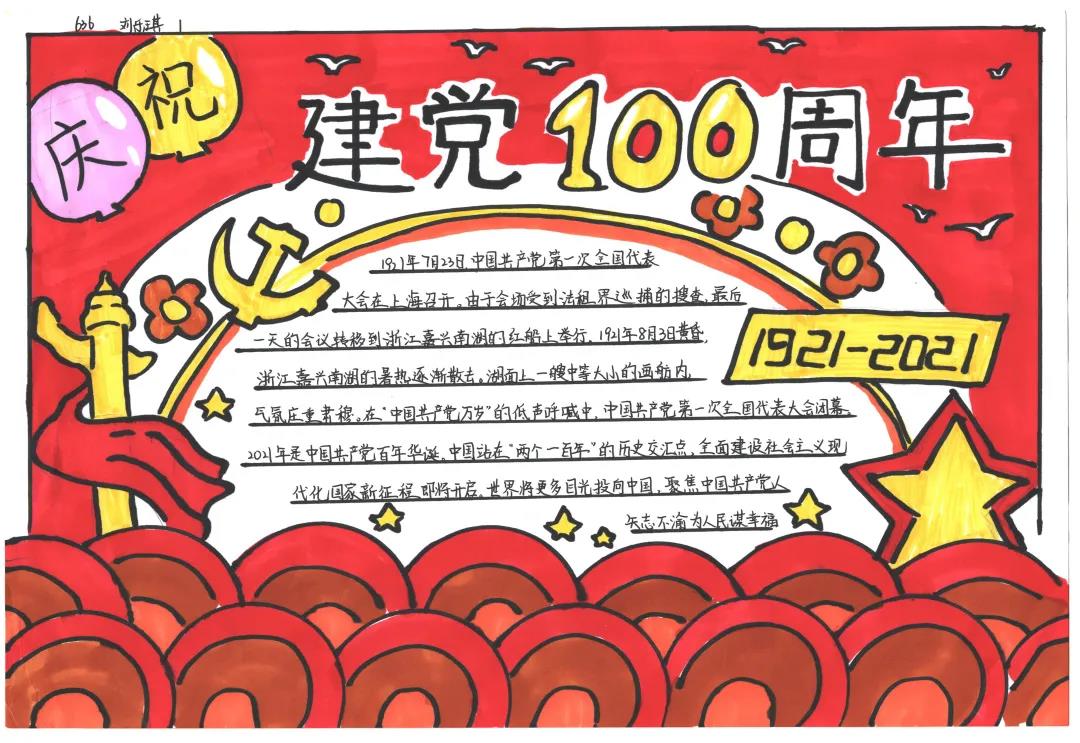 636 刘乐琪
庆祝
建党100周年
1921年7月23日,中国共产党第一次全国代表
大会在上海召开。由于会场受到法租界巡捕的搜查,最后
一天的会议转移到浙江嘉兴南湖的红船上举行。1921年8月3日黄昏,
浙江嘉兴南湖的暑热逐渐散去。湖面上一艘中等大小的画舫内,
气氛庄重肃穆。在“中国共产党万岁”的低声呼喊中,中国共产党第一次全国代表大会闭幕
2021年是中国共产党百年华诞。中国站在“两个一百年”的历史交汇点,全面建设社会主义现
代化国家新征程即将开启。世界将更多目光投向中国,聚焦中国共产党人
矢志不渝为人民谋幸福
1921-2021